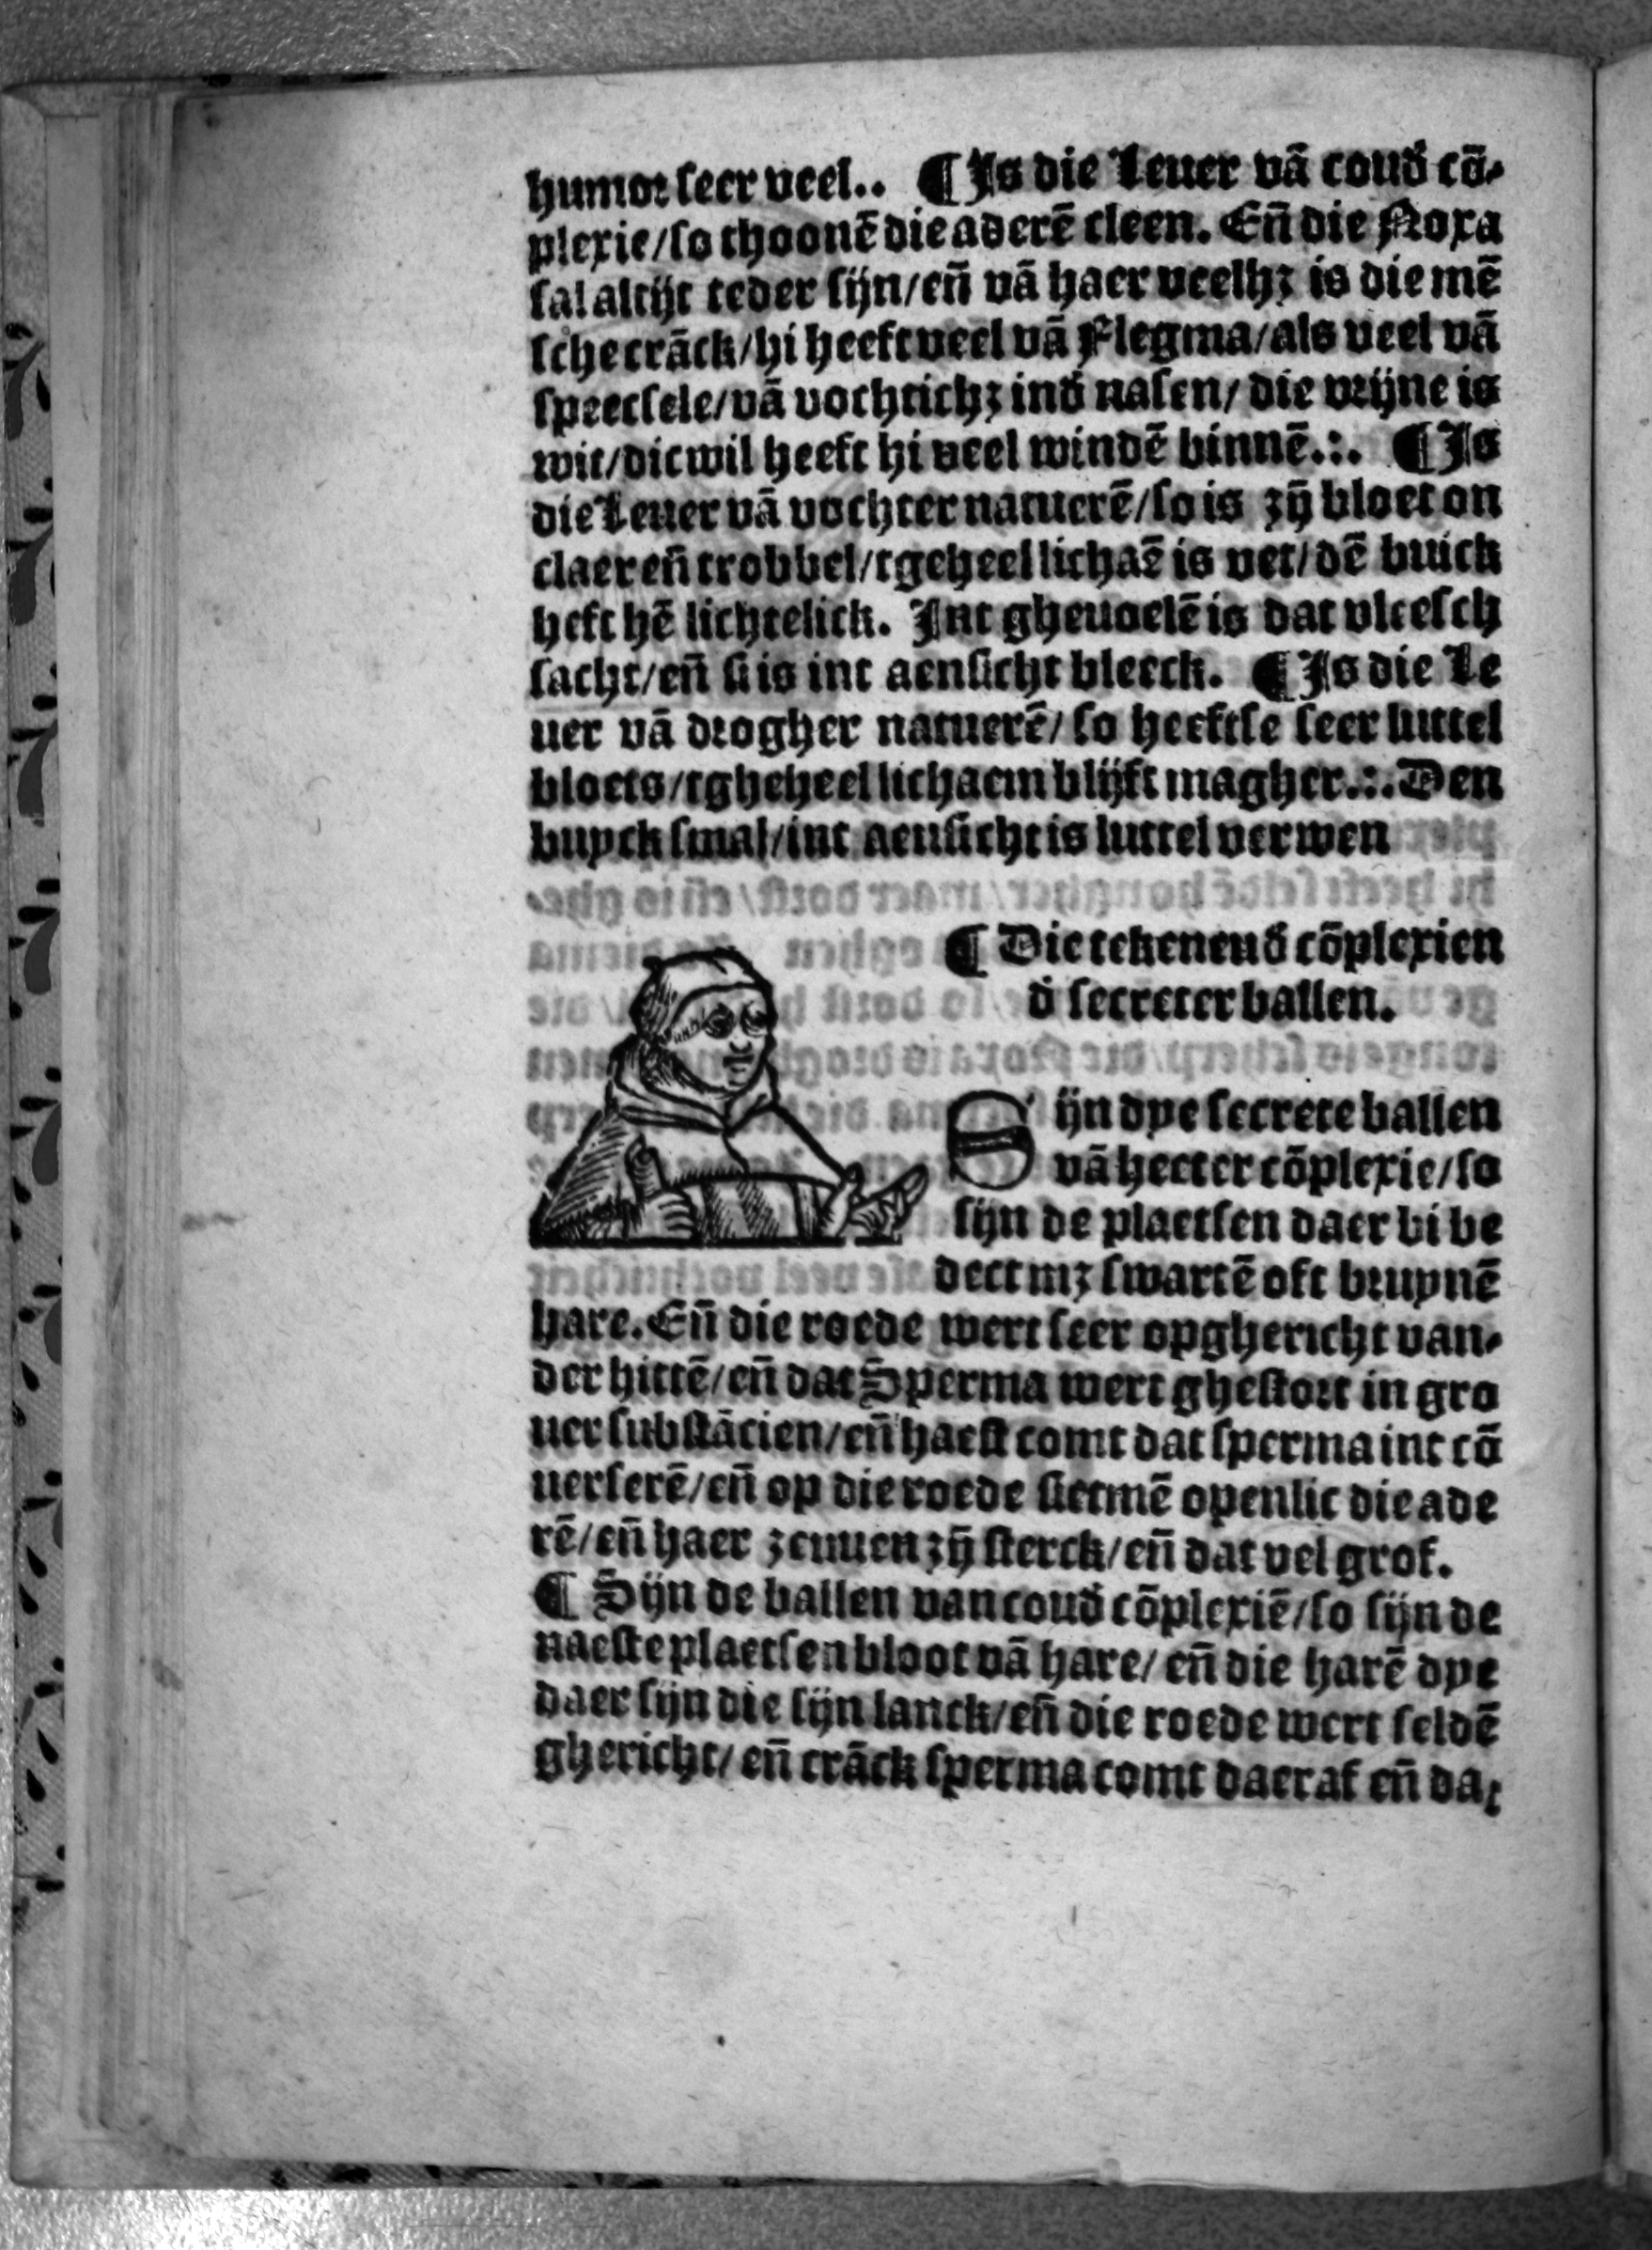 humor seer veel.. ¶ Is die Leuer vā coud̄ cō-
plexie/so thoonē die aderē cleen. Eñ die Noxa
sal altijt teder sijn/eñ vā haer veelhꝫ is die mē
sche crāck/hi heeft veel vā Flegma/als veel vā
speecsele/vā vochtichꝫ ind̄ nasen/ die vrijne is
wit/dicwil heeft hi veel windē binnē.:. ¶ Is
die Leuer vā vochter natuerē/so is zȳ bloet on
claer eñ trobbel/tgeheel lichaē is vet/dē buick
heft hē lichtelick. Int gheuoelē is dat vleesch
sacht/eñ si is int aensicht bleeck. ¶ Is die Le
uer vā drogher natuerē/ so heeftse seer luttel
bloets/tgheheel lichaem blijft magher.:. Den
buyck smal/int aensicht is luttel verwen
¶ Die tekenend̄ cōplexien
d̄ secreter ballen.
Sijn dye secrete ballen
vā heeter cōplexie/so
sijn de plaetsen daer bi be
dect mꝫ swartē oft bruynē
hare. Eñ die roede wert seer opghericht van-
der hittē/eñ dat Sperma wert ghestort in gro
uer substācien/eñ haest comt dat sperma int cō
uerserē/eñ op die roede sietmē openlic die ade
rē/eñ haer zenuen zȳ sterck/eñ dat vel grof.
¶ Sijn de ballen van coud̄ cōplexiē/so sijn de
naeste plaetsen bloot vā hare/ eñ die harē dye
daer sijn die sijn lanck/eñ die roede wert seldē
ghericht/ eñ crāck sperma comt daeraf eñ dat